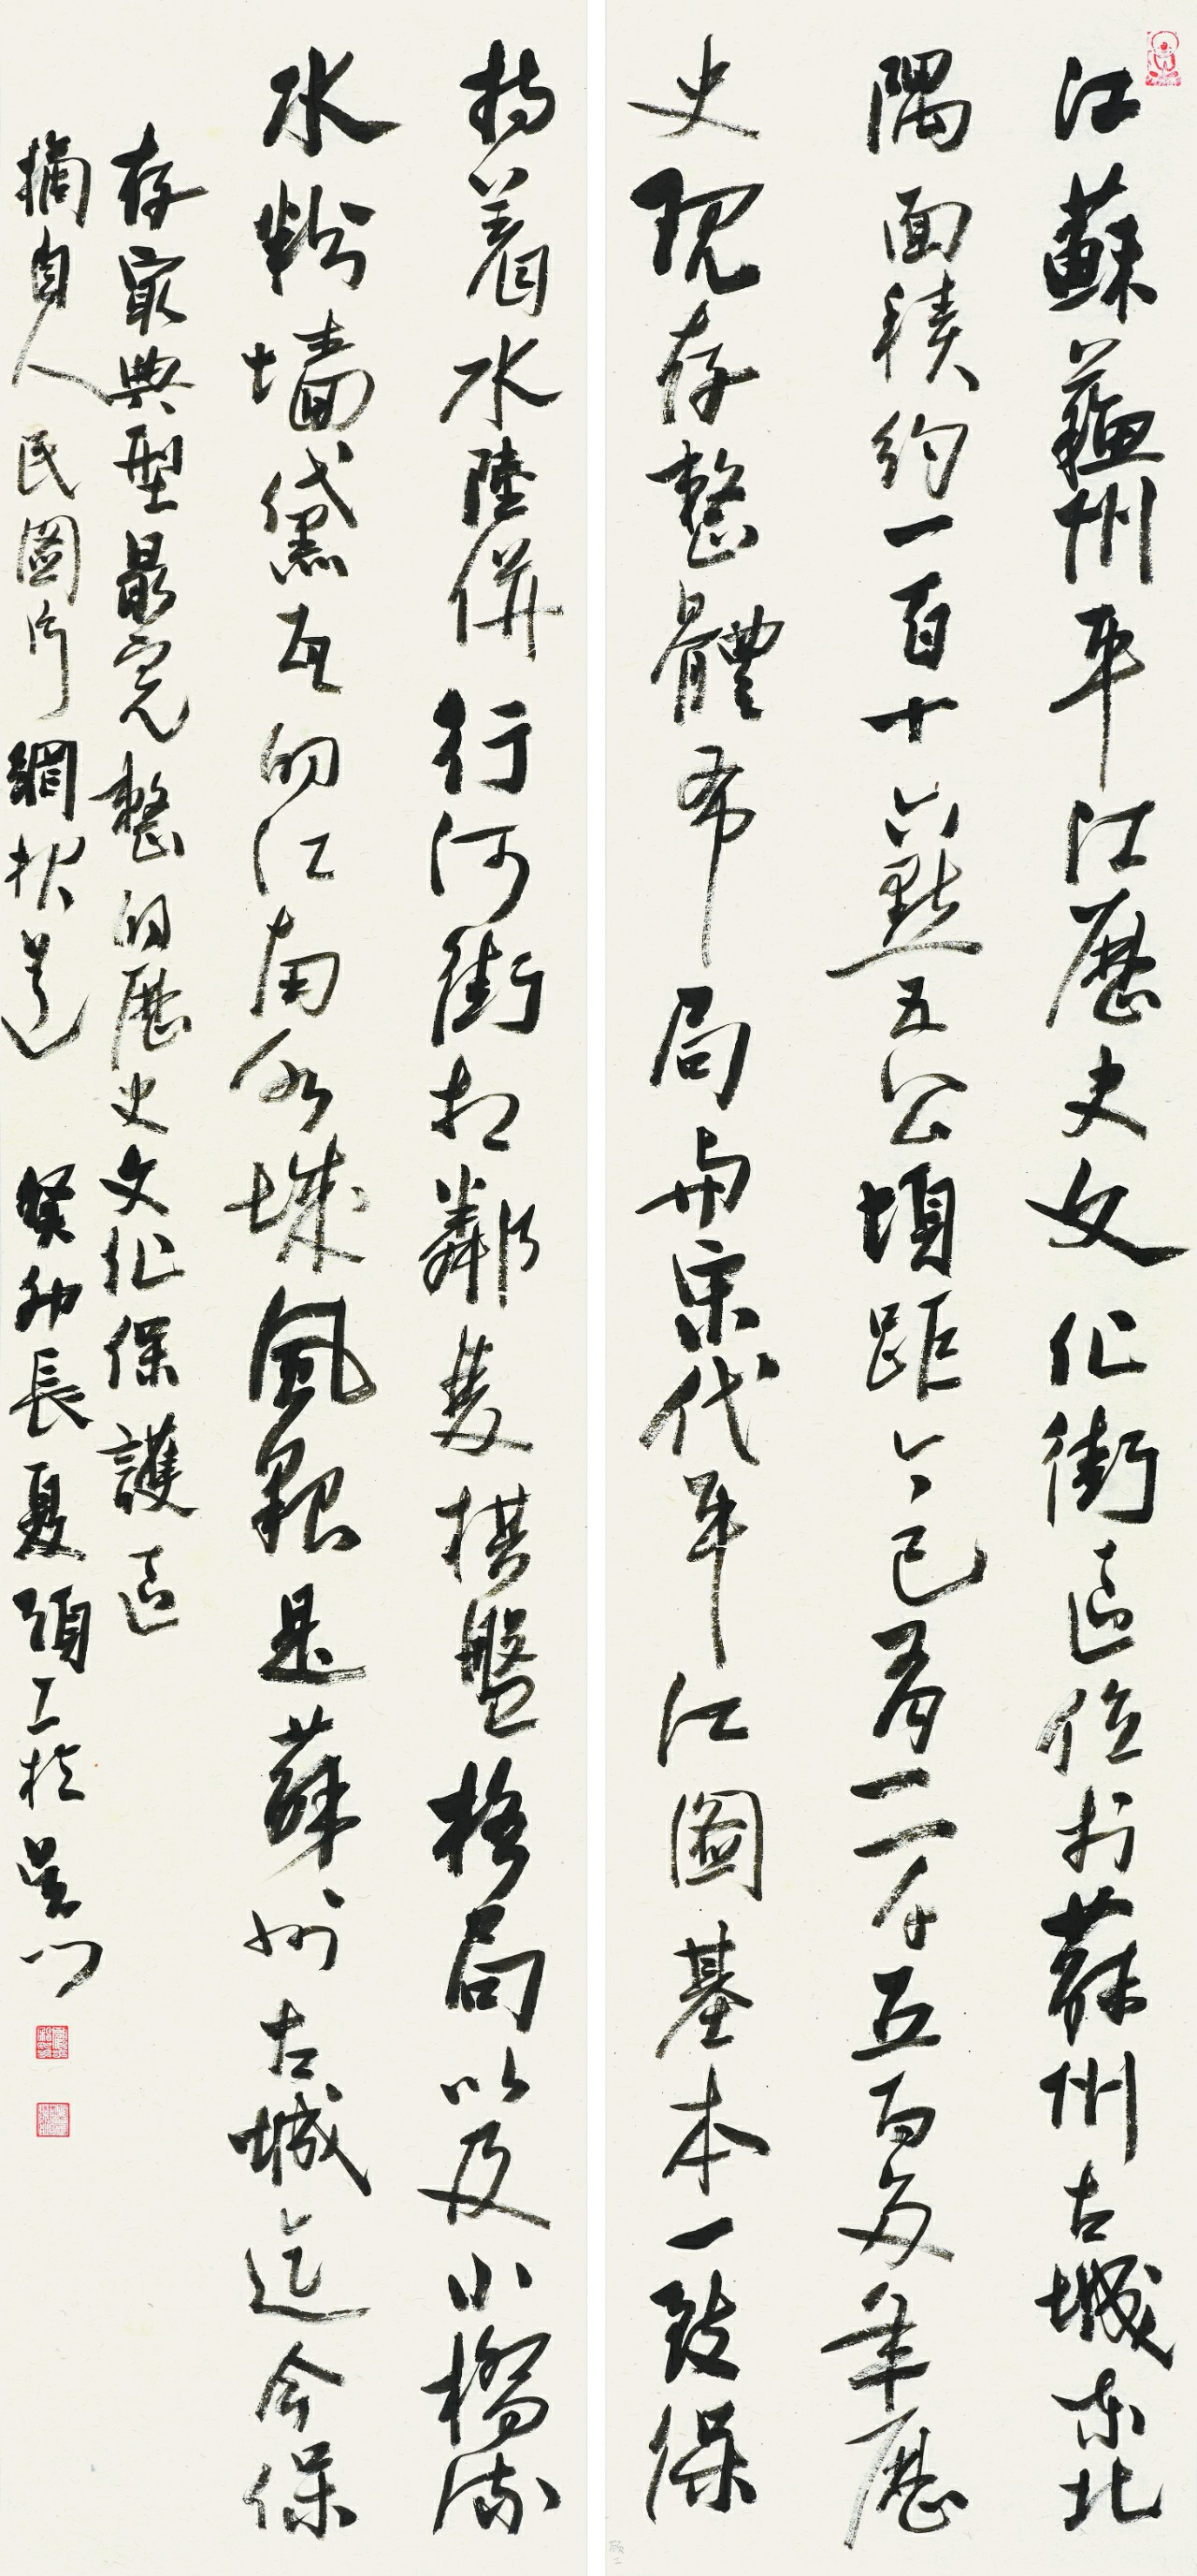 江蘇蘓州平江歷史文化街區位於蘇州古城東北
隅面積約一百十六點五公頃距今已有二千五百多年歷
史現存整體布局與宋代平江圖基本一致保
持着水陸併行河街相鄰雙棋盤格局以及小橋流
水粉墻黛瓦的江南水城風貌是蘇州古城迄今保
存最典型最完整的歷史文化保護區
摘自人民圖片網報道 癸卯長夏頌工於吴門